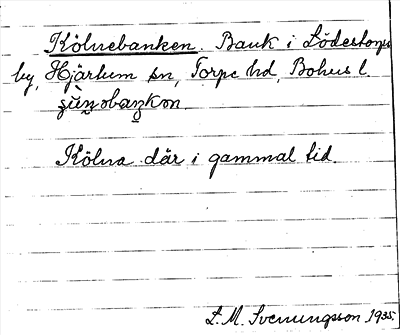 Kölnebanken. Bank i Lödestorps
by, Hjärtum sn, Torpe hd, Bohus l.
Kölna där i gammal tid.
S. M. Svenungsson 1935.